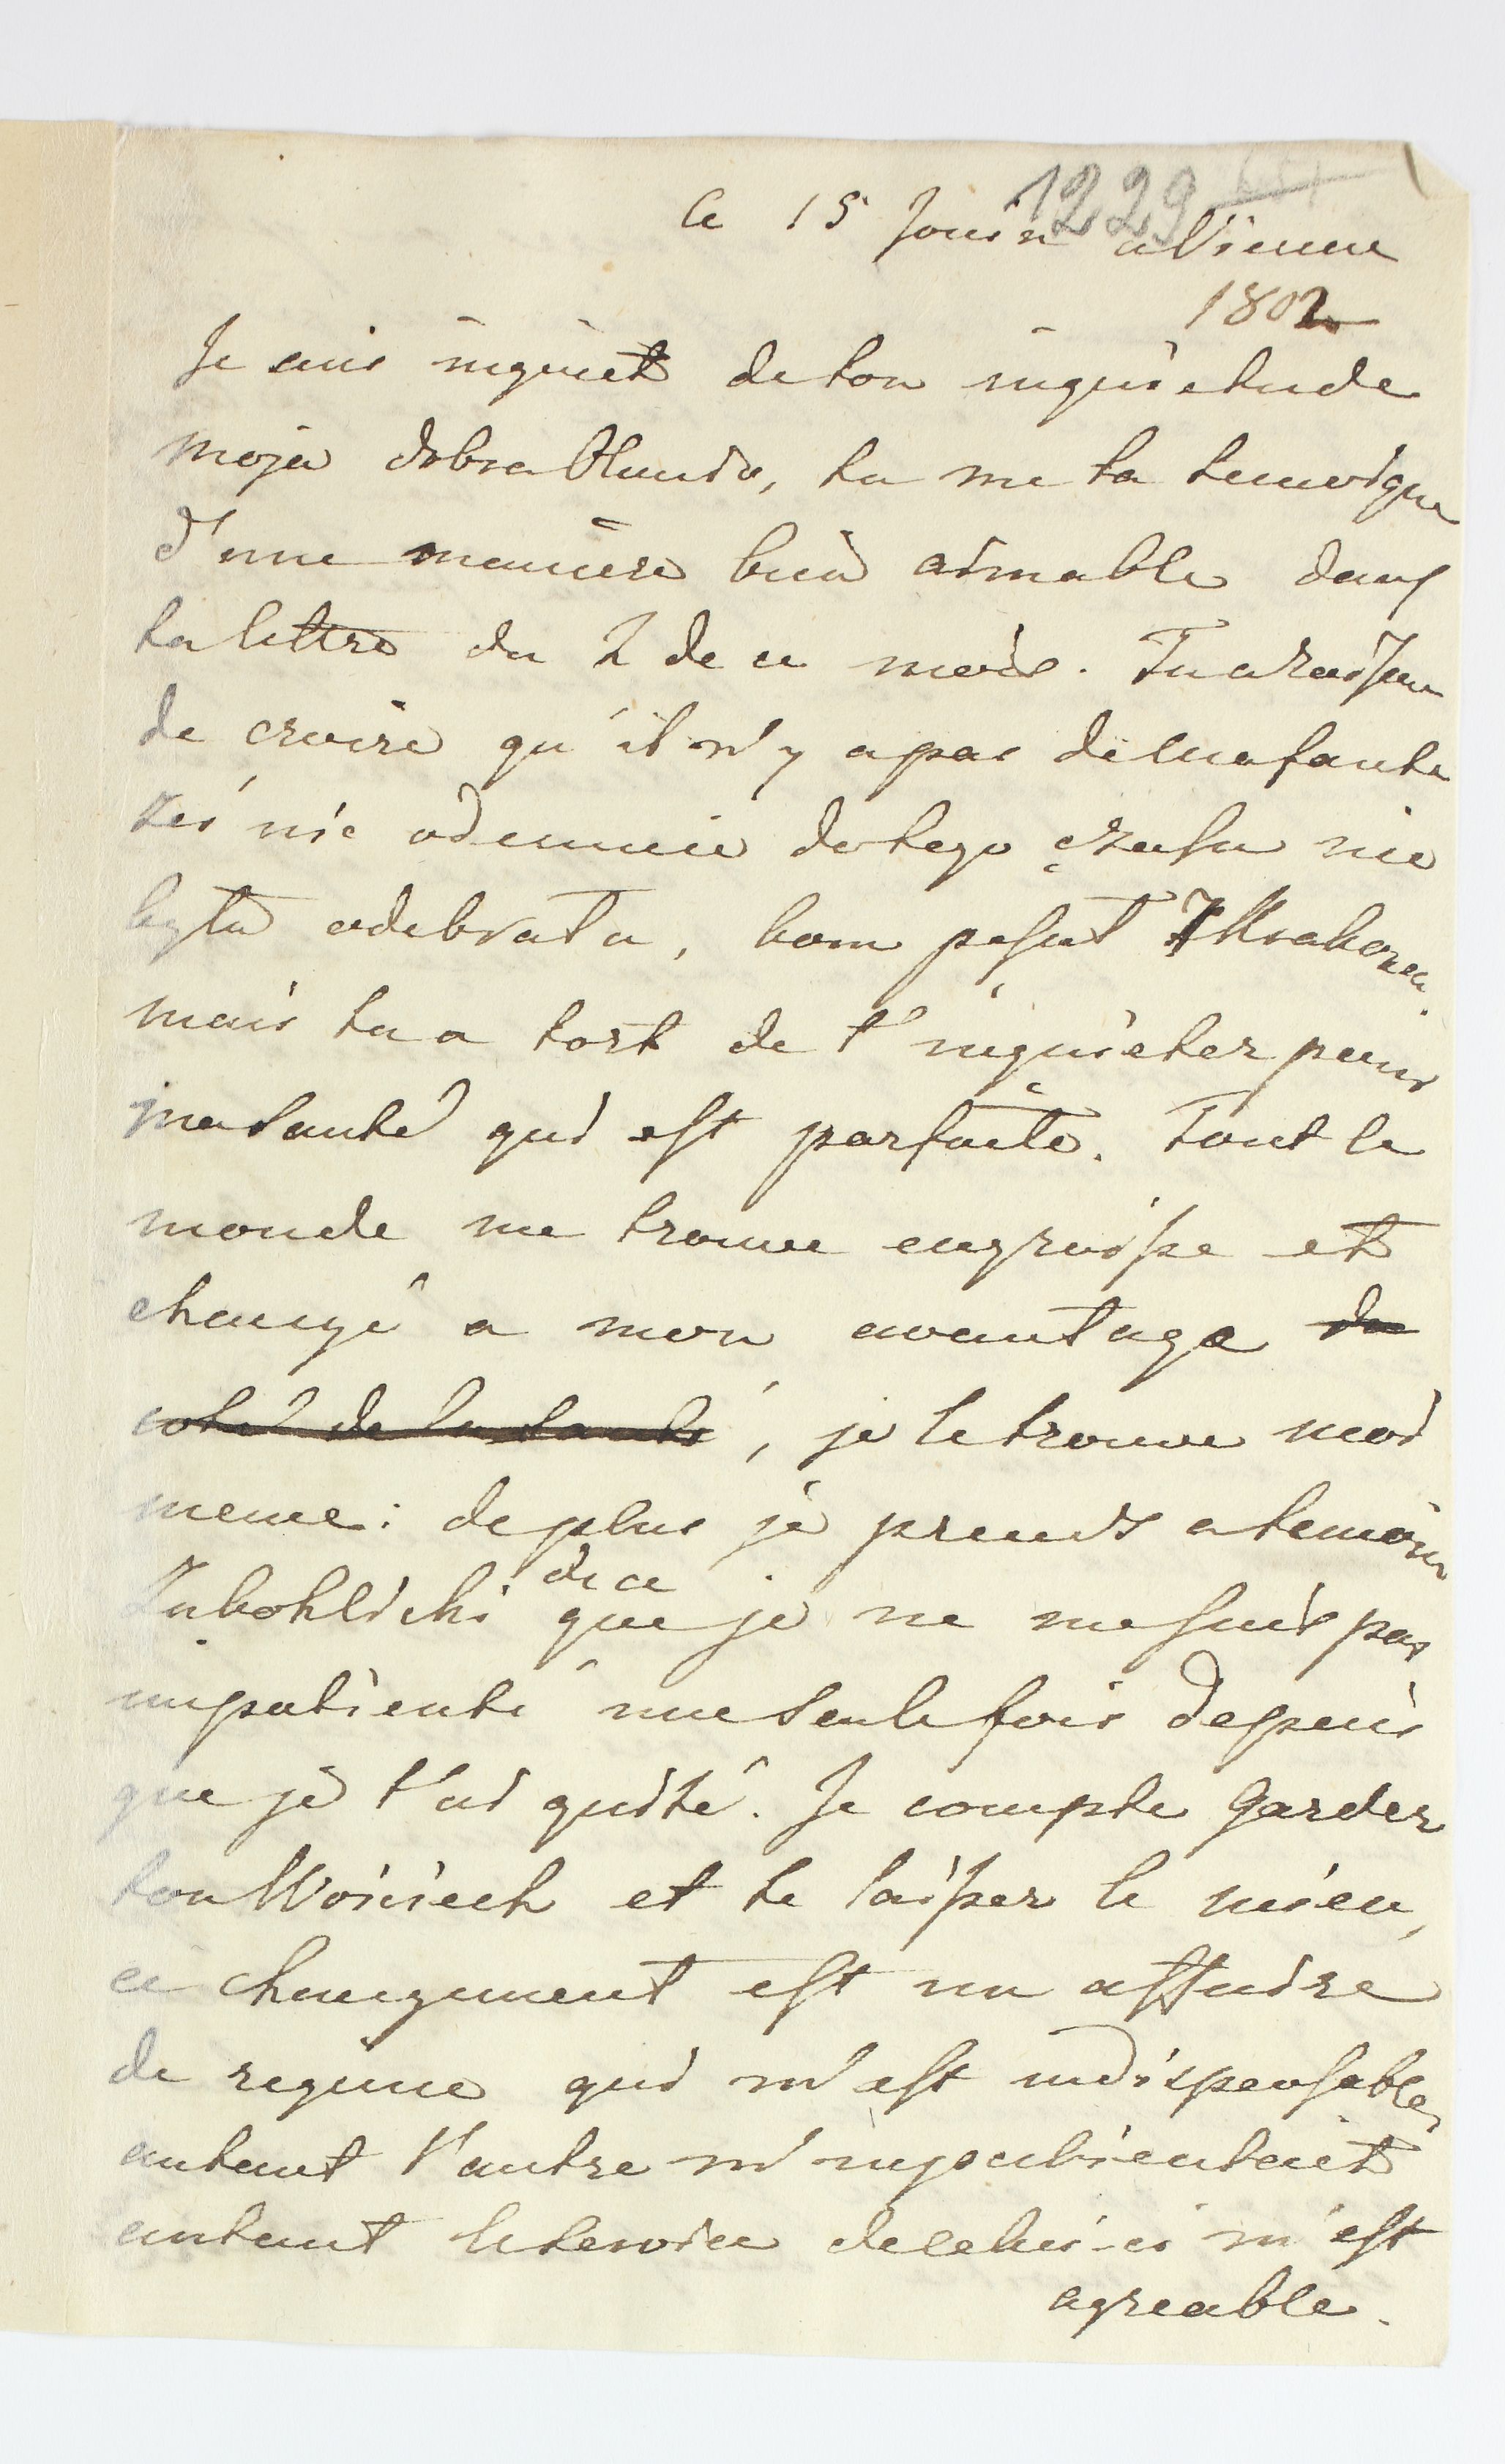 1229
ce 15 Jouin a Vienne
1802
Je suis inquiet de ton inquietude
moja dobra Numio, tu me la temoigne
d'une maniere bien aimable dans
ta lettre du 2 de ce mois. Tu a raison
de croire qu'il n'y a pas de ma faute
zes nic odemnie do tego czasu nie
byla odebrala, bom posłał z Krakowa.
mais tu a tort de t'inquieter pour
ma santé qui est parfaite. Tout le
monde me trouve engraisse et
changé a mon avantage du
coté de la santé, je le trouve moi
meme: de plus je prends a temoin
de ce
que je ne me suis pas
impatienté une seule fois depuis
que je t'ai quité. Je compte garder
ton Woiciech et te laisser le mien,
ce changement est un affaire
de regime qui m'est indispensable,
autant l'autre m'impatientait
autant le service de celui-ci m'est
agreable.